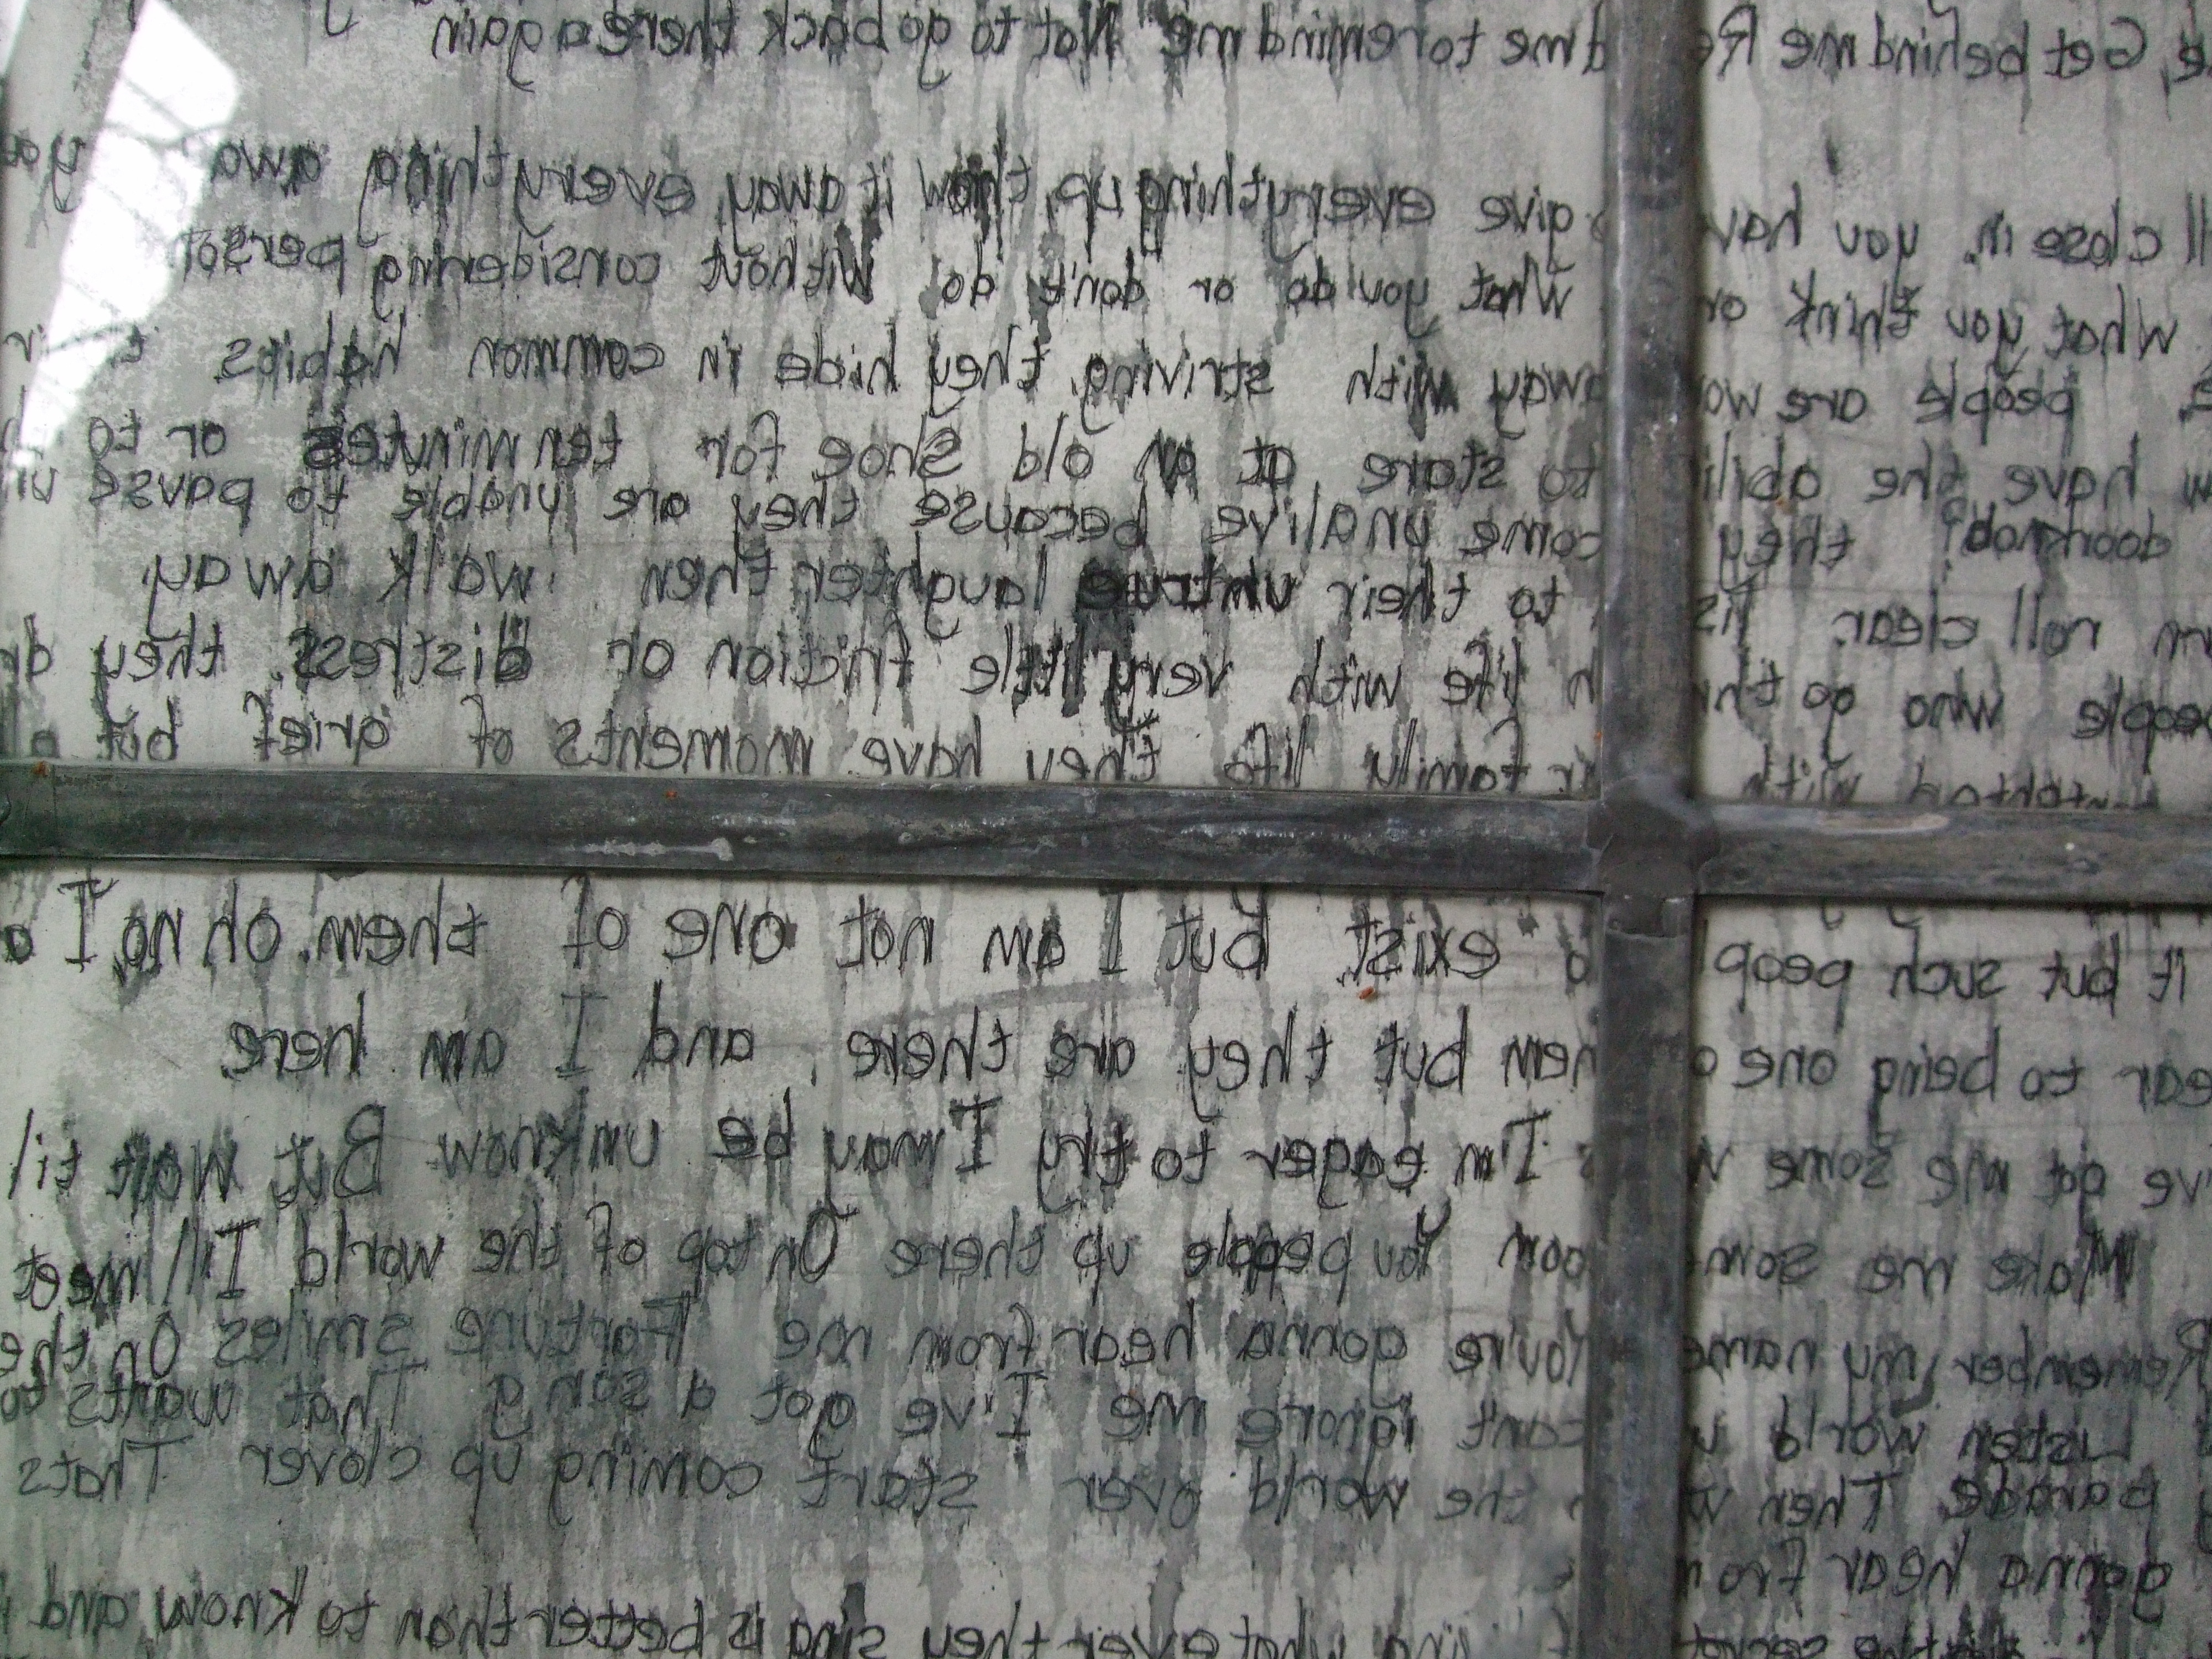 Get behind me Re dme to remind me Not to go back there again
ll close in. you hav give everything up, throw it away, everything awa you
What you think or What you do or don't do Without considering person
people are wo away with striving, they hide in common habits
have the abili to stare at an old shoe for ten minutes or to
doorknob? they come unalive because they are unable to pause
roll clear. lis to their untrue laughter then walk away.
people who go thr h life with very little friction or distress. they dr
with family life they have moments of grief but
it but such peop o exist but I am not one of them. oh no, I a
ear to being one o hem but they are there, and I am here.
ve got me some w s I'm eager to try I may be unknow But wait til
Make me som oom You people up there On top of the world I'll meet
Remember my name You're gonna hear from me Fortune smiles On the
Listen world u cant ignore me I've got a song That wants to
parade Then w the world over start coming up clover Thats
gonna hear from
the secret sing whatever they sing is better than to know and